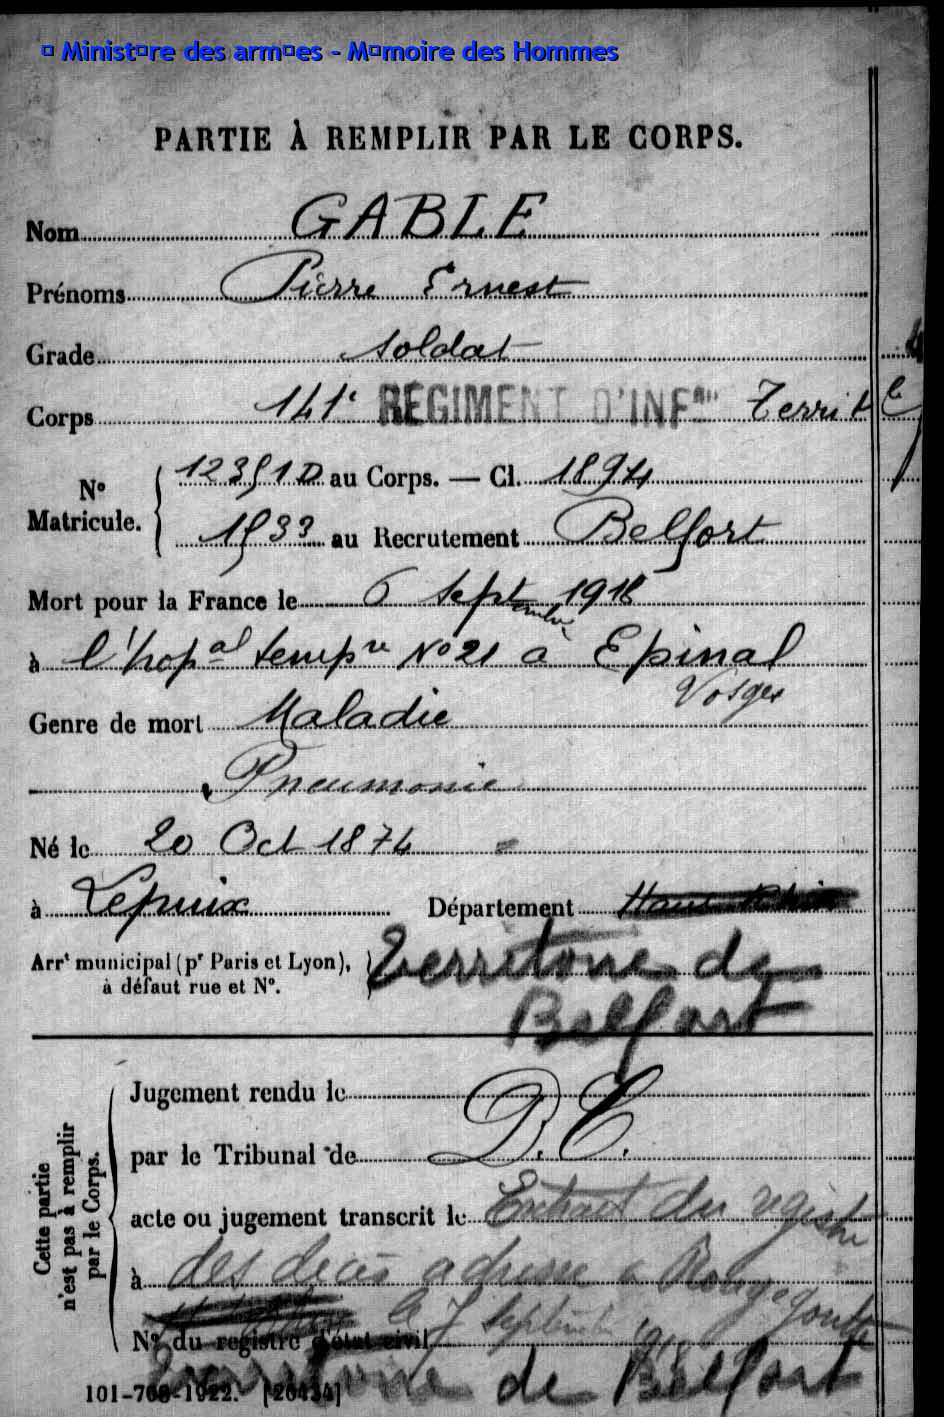 © Ministère des armées - Mémoire des Hommes
PARTIE À REMPLIR PAR LE CORPS.
Nom GABLE
Prénoms Pierre Ernest
Grade soldat
Corps 141e RÉGIMENT D'INFrie Territ le
N° Matricule. 12351D au Corps. — Cl. 1894
1533 au Recrutement Belfort
Mort pour la France le 6 Septembre 1918
à l'hopal tempre No 21 à Epinal
Vosges
Genre de mort Maladie
Pneumonie
Né le 20 Oct 1874
à Lepuix Département Haut Rhin
Arrt municipal (pr Paris et Lyon), à défaut rue et N°. Territoire de
Belfort
Cette partie n'est pas à remplir par le Corps.
Jugement rendu le D.C.
par le Tribunal de
acte ou jugement transcrit le Extrait du registre
à des décès adressé à Rougegoutte
le 7 Septembre
N° du registre d'état civil
Territoire de Belfort
101-708-1922. [26434]